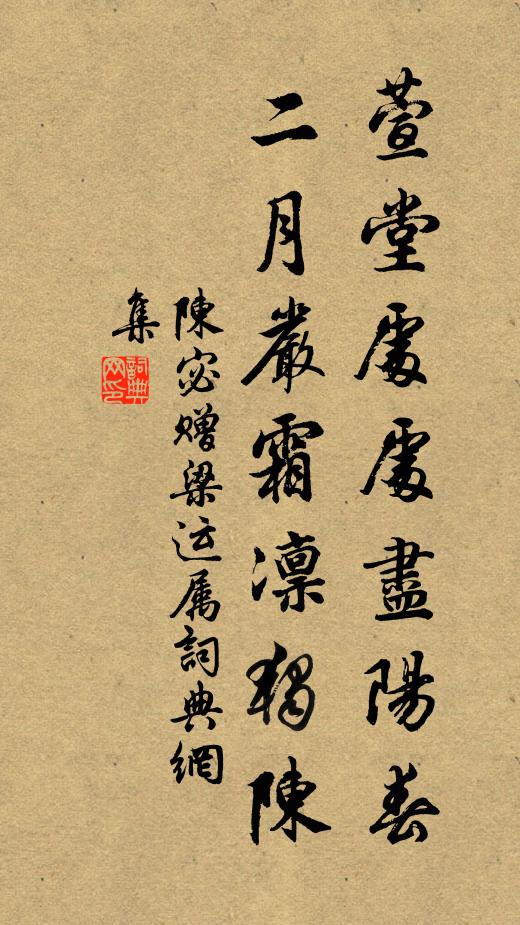 萱堂處處盡陽春
二月嚴霜凜獨陳
陳宓贈梁运属詞典網
集
詞典
网印